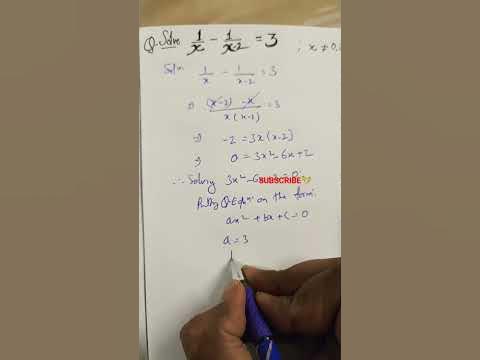 Q. Solve 1/x - 1/x-2 = 3 ; x ≠ 0,
Soln 1/x - 1/x-2 = 3
⇒ (x-2) - x / x(x-2) = 3
⇒ -2 = 3x(x-2)
⇒ 0 = 3x² - 6x + 2
∴ Solving 3x² - 6x
SUBSCRIBE
Q. Eqn. on the form.
ax² + bx + c = 0
a = 3